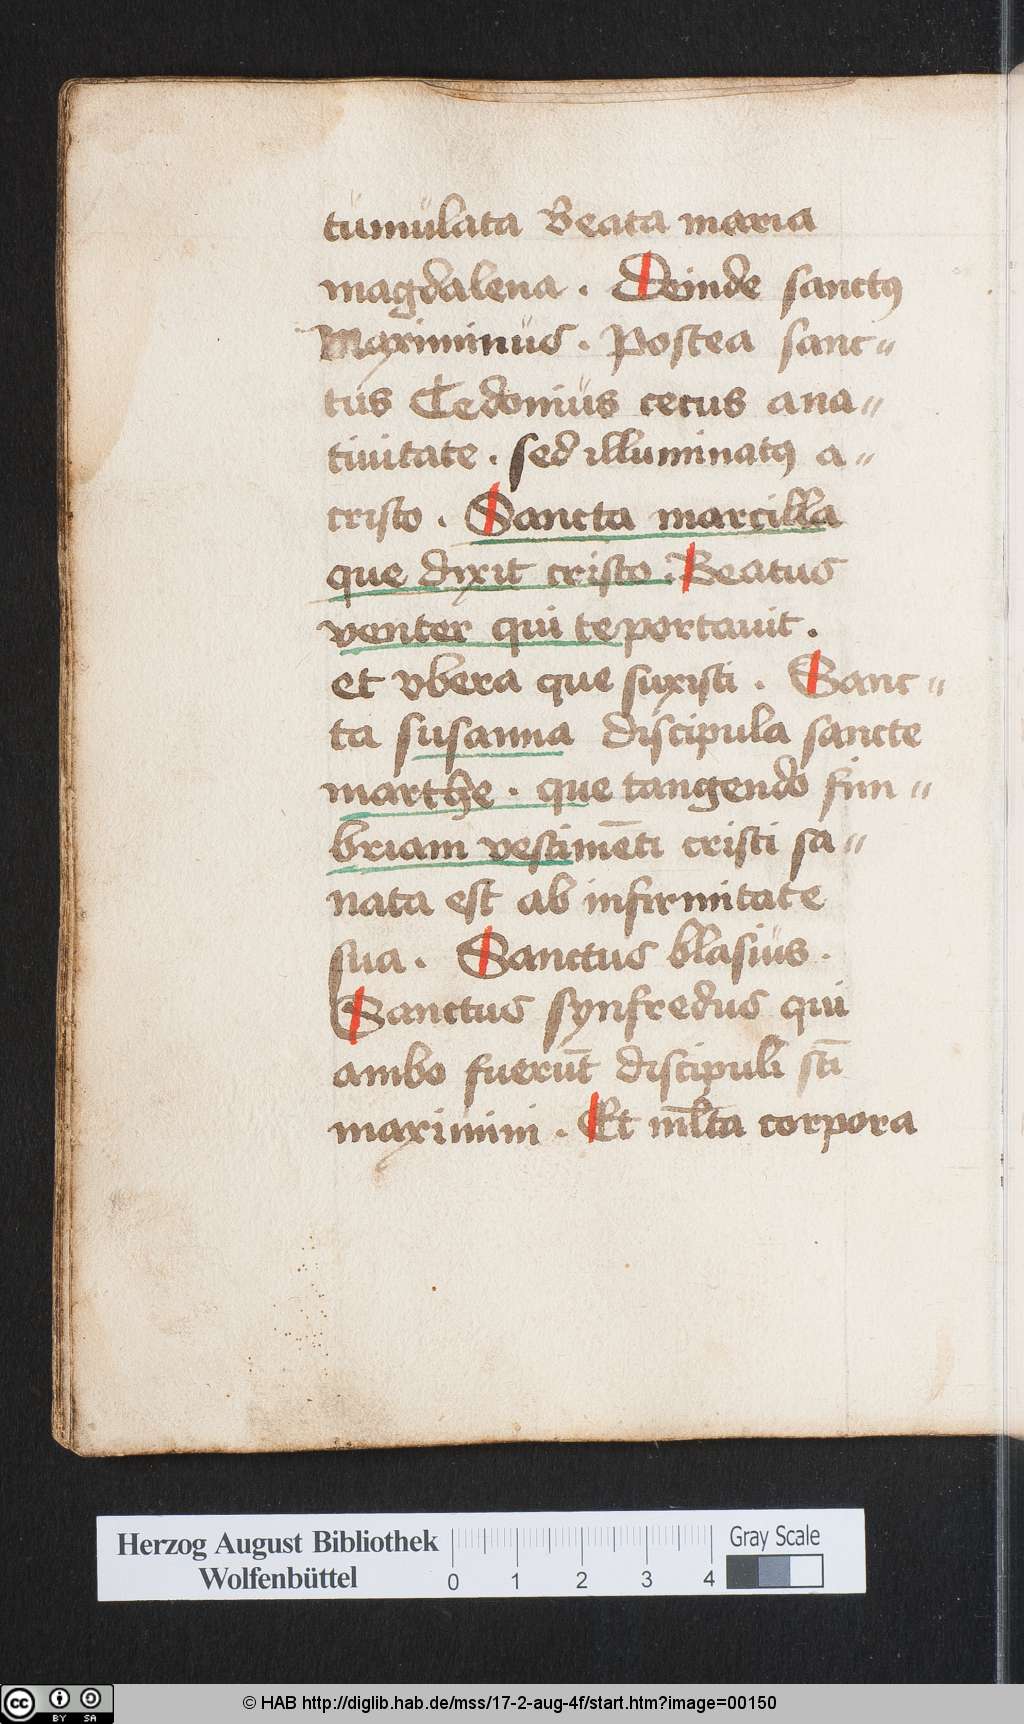 tumulata Beata maria
magdalena . Deinde sanctꝯ
Maximinus . Postea sanc〃
tus Cedonius cecus ana〃
tiuitate . sed illuminatꝯ a〃
cristo . Sancta marcilla
que dixit cristo . Beatus
venter qui te portauit .
et vbera que suxisti . Sanc〃
ta susanna discipula sancte
marthe . que tangendo fim〃
briam vestimēti cristi sa〃
nata est ab infirmitate
sua . Sanctus blasius .
Sanctus synfredus qui
ambo fuerūt discipuli sc̄i
maximini . Et ml̄ta corpora
Herzog August Bibliothek
Wolfenbüttel
0 1 2 3 4
Gray Scale
cc BY SA
© HAB http://diglib.hab.de/mss/17-2-aug-4f/start.htm?image=00150